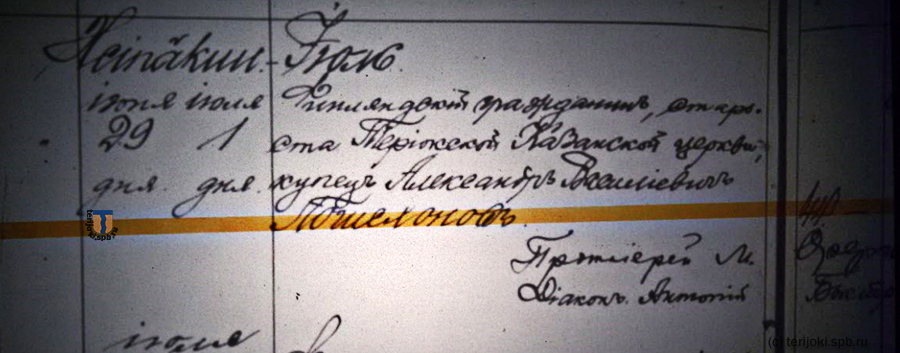 Іюль
іюня іюля Финляндскій гражданинъ, старо-
29 1 ста Теріокской Казанской церкви,
дня. дня. купецъ Александръ Василіевичъ
Пошехоновъ.
Протоіерей М.
Діаконъ Антоній
іюля
terijoki.spb.ru
(c) terijoki.spb.ru